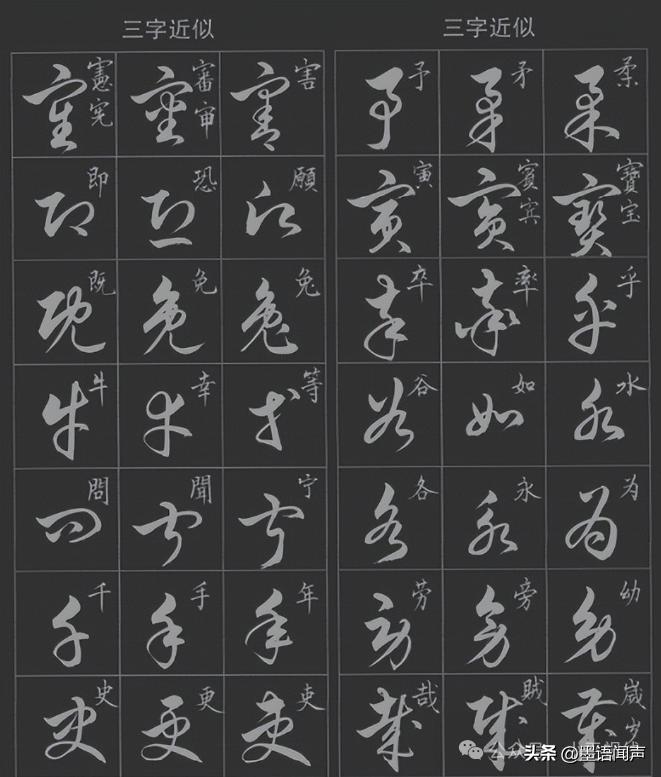 三字近似 三字近似
憲宪 審审 害 予 矛 柔
即 恐 願 寅 賓宾 寶宝
既 免 兔 卒 率 乎
牛 幸 等 谷 如 水
問 聞 宁 各 永 为
千 手 年 劳 旁 幼
史 更 吏 哉 賊 歲岁
头条 @墨语闻声